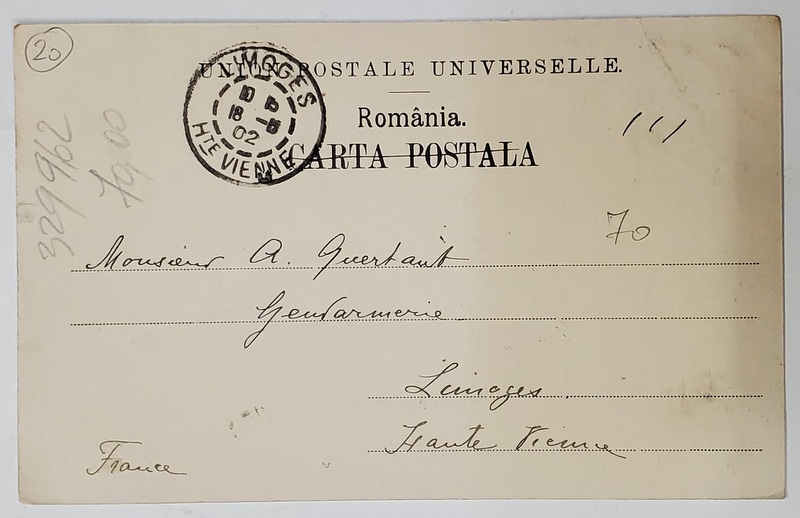 20
UNION POSTALE UNIVERSELLE.
LIMOGES
18
02
HTE VIENNE
România.
CARTA POSTALA
329962
79.00
70
Monsieur A. Quertant
Gendarmerie
Limoges.
Haute Vienne
France